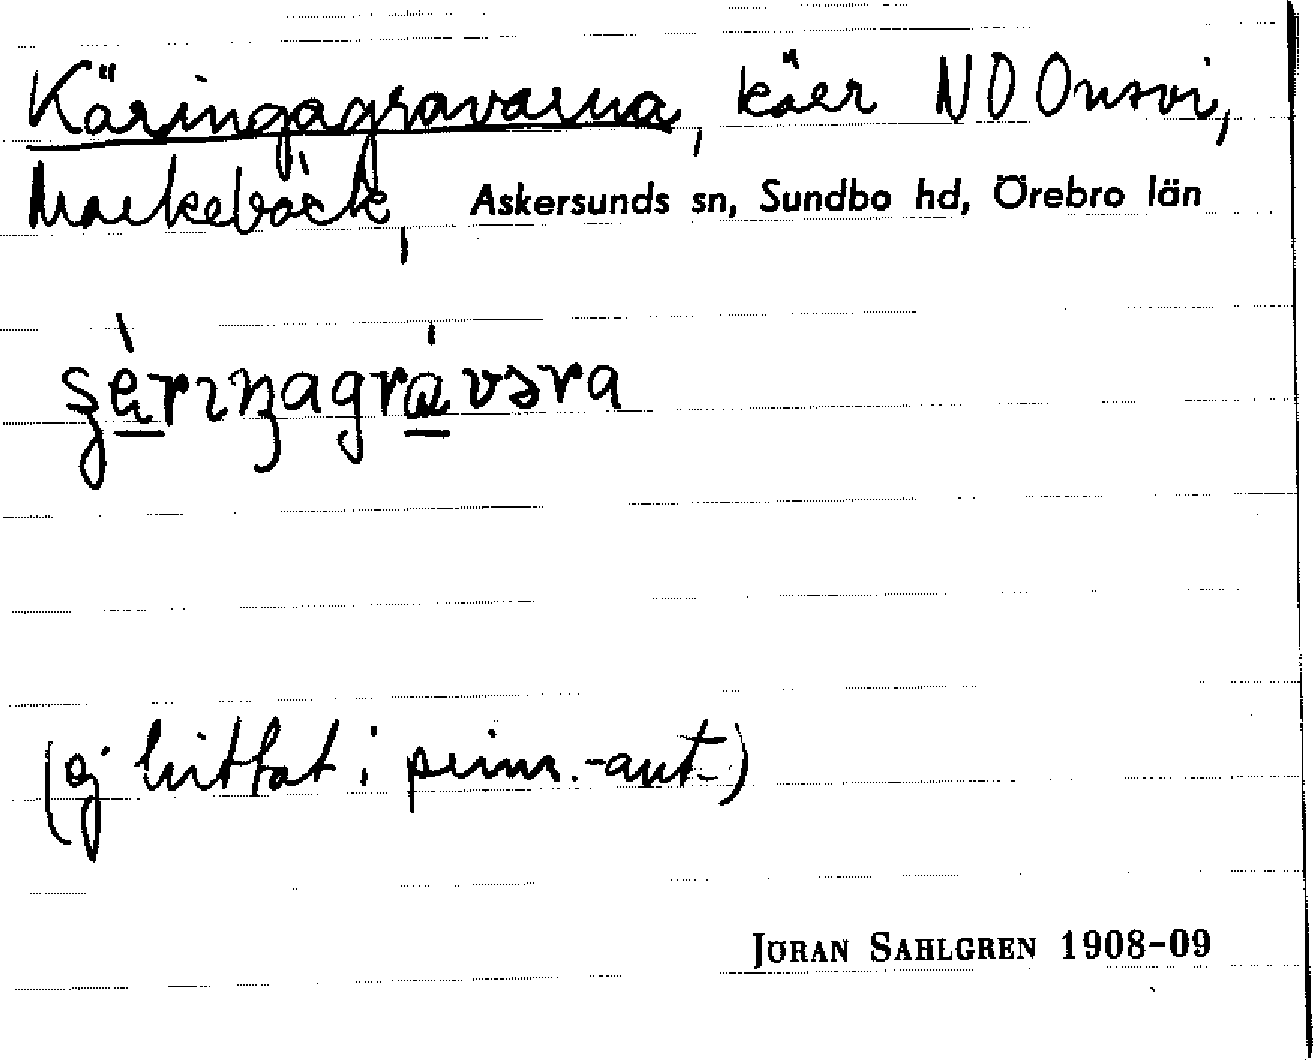 Käringagravarna, kärr NO Onsvi,
Markebäck, Askersunds sn, Sundbo hd, Örebro län
(ej hittat i prim.-ant.)
JÖRAN SAHLGREN 1908-09